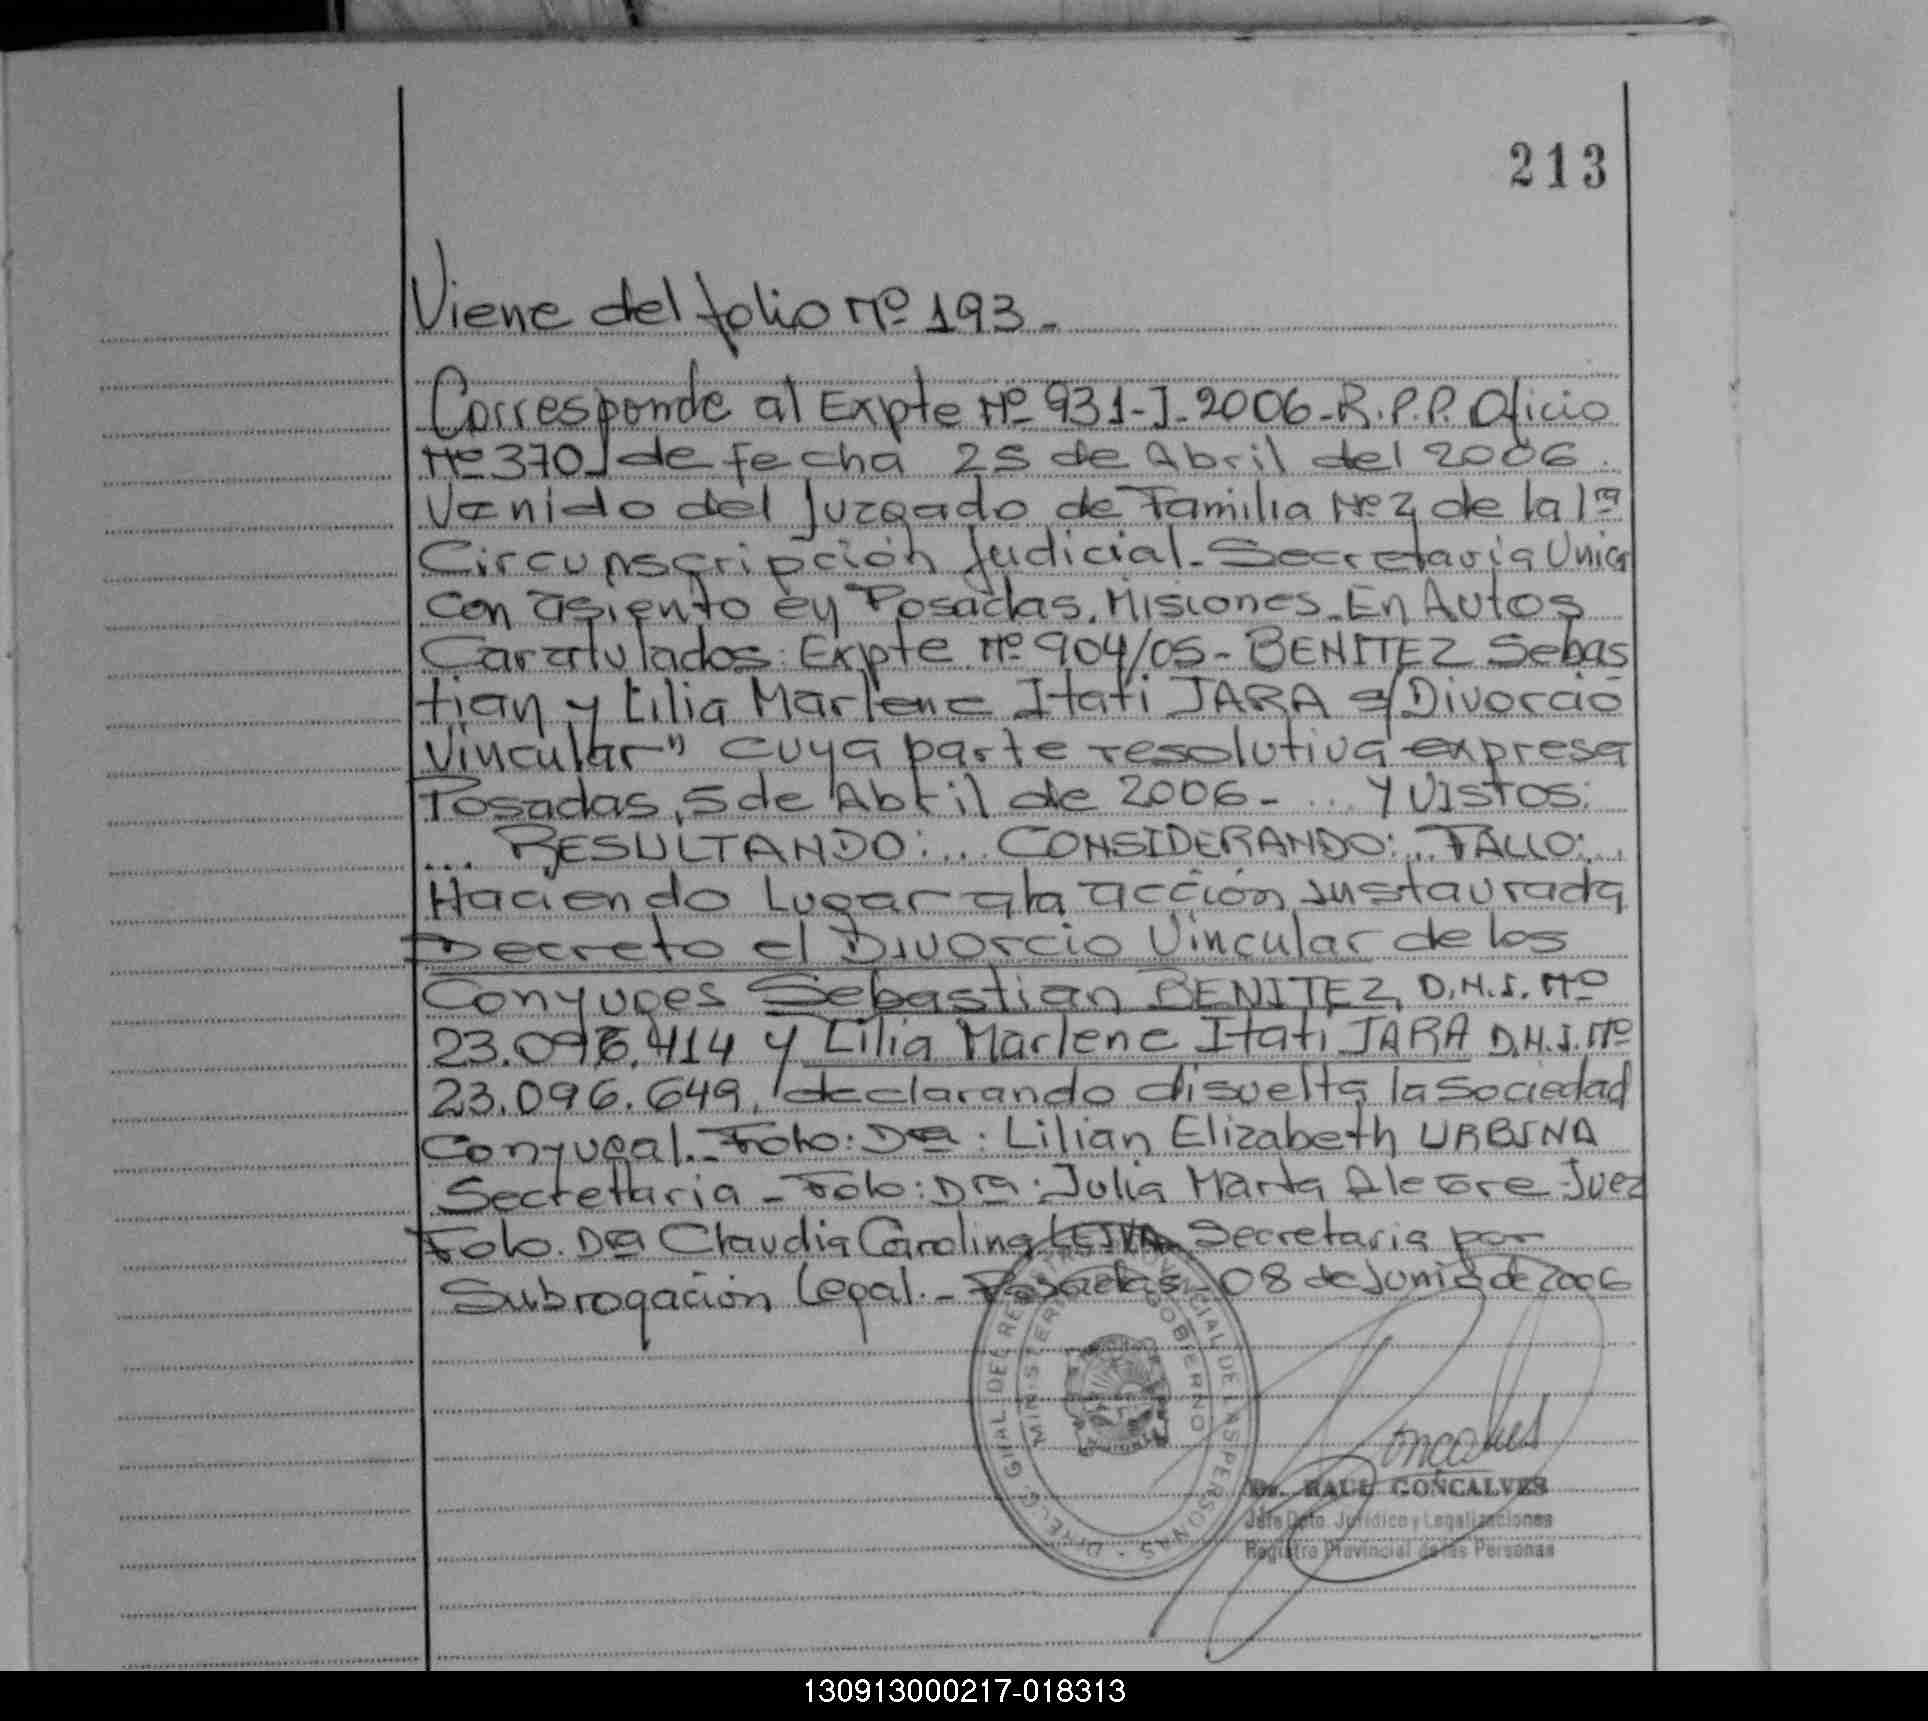 213
Viene del folio Nº 193.-
Corresponde al Expte Nº 931-J-2006-R.P.P. Oficio
Nº 370 de fecha 25 de Abril del 2006.
Venido del Juzgado de Familia Nº 2 de la 1ra
Circunscripción Judicial - Secretaría Unica
con asiento en Posadas, Misiones. En Autos
Caratulados: Expte Nº 904/05 - BENITEZ Sebas
tian y Lilia Marlene Itati JARA s/Divorcio
Vincular" cuya parte resolutiva expresa
Posadas, 5 de Abril de 2006 - ... Y VISTOS:
... RESULTANDO: ... CONSIDERANDO: ... FALLO: ...
Haciendo Lugar a la acción instaurada
Decreto el Divorcio Vincular de los
Conyuges Sebastian BENITEZ, D.N.I. Nº
23.096.414 y Lilia Marlene Itati JARA D.N.I. Nº
23.096.649, declarando disuelta la Sociedad
Conyugal.- Fdo: Dra: Lilian Elizabeth URBINA
Secretaria - Fdo: Dra. Julia Marta Alegre - Juez
Fdo. Dra Claudia Carolina LEIVA Secretaria por
Subrogación Legal.- Posadas - 08 de Junio de 2006
DIREC. GRAL DEL REGISTRO PROVINCIAL DE LAS PERSONAS
MINISTERIO DE GOBIERNO
Goncalves
Dr. RAUL GONCALVES
Jefe Dpto. Jurídico y Legalizaciones
Registro Provincial de las Personas
130913000217-018313